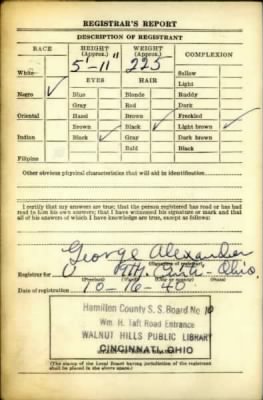 REGISTRAR'S REPORT
DESCRIPTION OF REGISTRANT
RACE HEIGHT (Approx.) WEIGHT (Approx.) COMPLEXION
5'-11" 225
White Sallow
EYES HAIR Light
Negro ✓ Blue Blonde Ruddy
Gray Red Dark
Oriental Hazel Brown Freckled
Brown Black ✓ Light brown ✓
Indian Black ✓ Gray Dark brown
Bald Black
Filipino
Other obvious physical characteristics that will aid in identification
I certify that my answers are true; that the person registered has read or has had
read to him his own answers; that I have witnessed his signature or mark and that
all of his answers of which I have knowledge are true, except as follows:
George Alexander
(Signature of registrar)
Registrar for U Cinti- Ohio.
(Precinct) (Ward) (City or county) (State)
Date of registration 10-16-40
Hamilton County S. S. Board No 10
Wm. H. Taft Road Entrance
WALNUT HILLS PUBLIC LIBRARY
CINCINNATI, OHIO
(STAMP OF LOCAL BOARD)
(The stamp of the Local Board having jurisdiction of the registrant
shall be placed in the above space.)